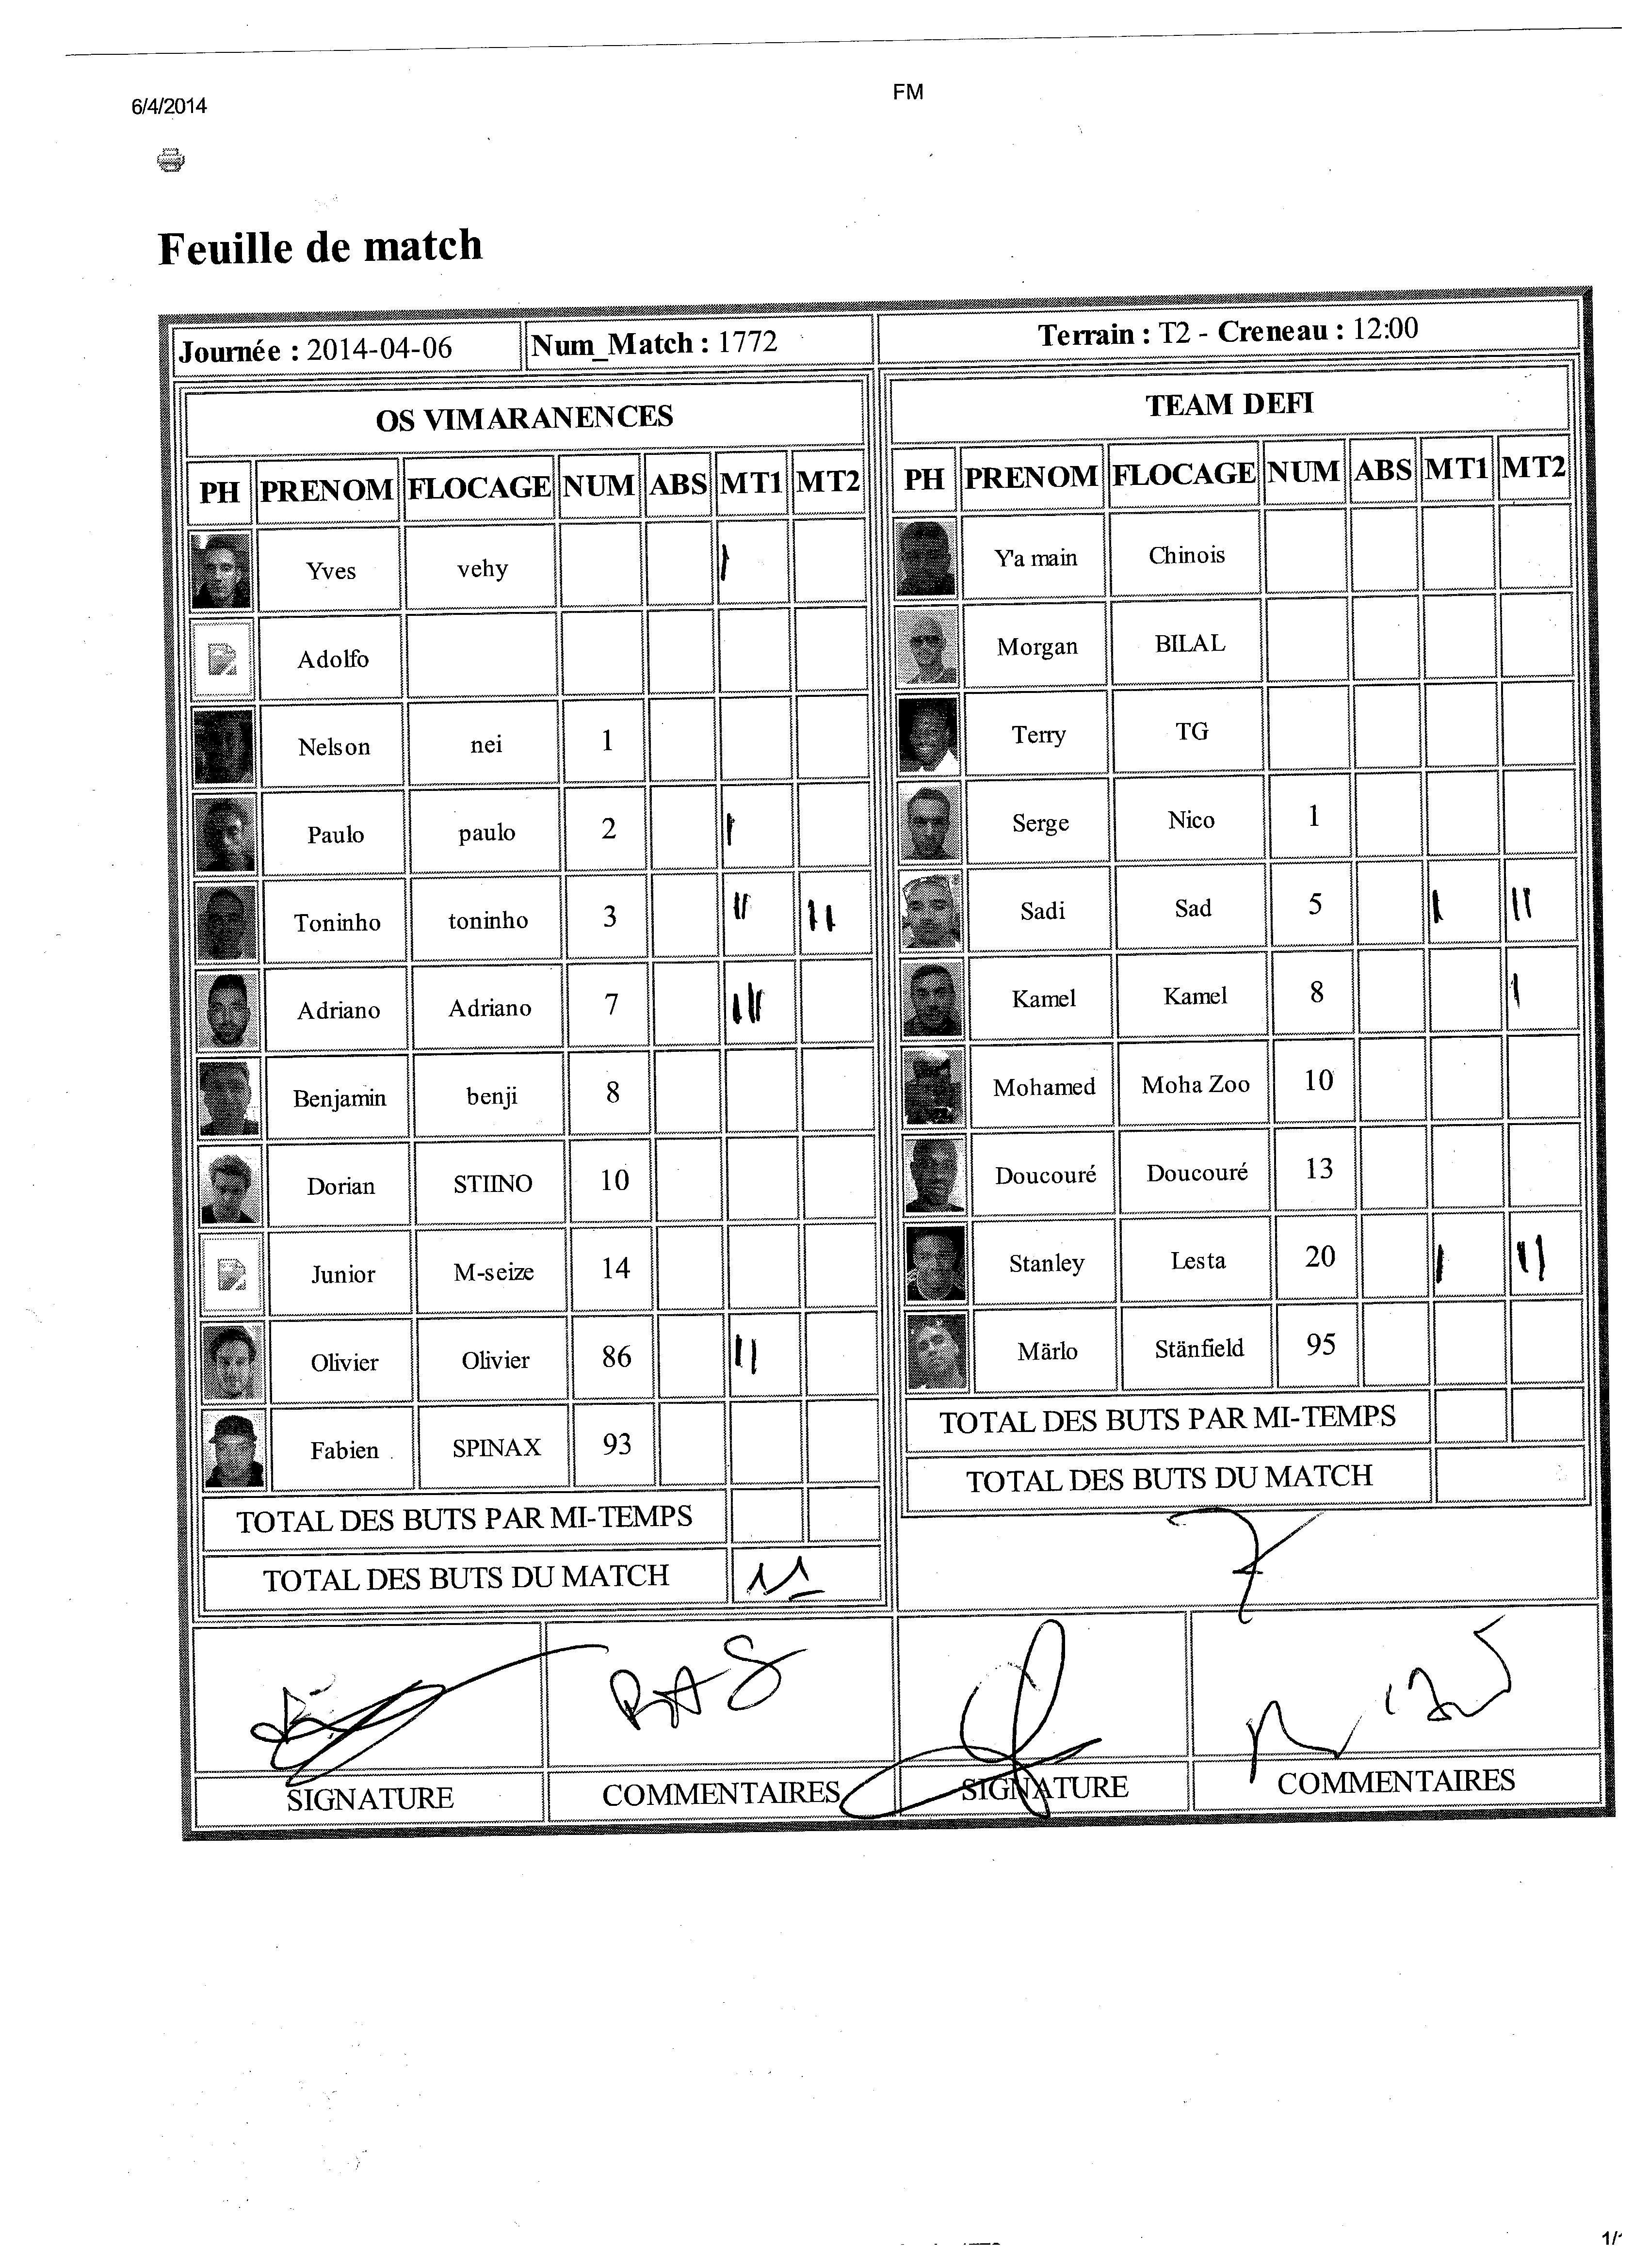 6/4/2014
FM
Feuille de match
Journée : 2014-04-06 Num_Match : 1772 Terrain : T2 - Creneau : 12:00
OS VIMARANENCES
PH PRENOM FLOCAGE NUM ABS MT1 MT2
Yves vehy I
Adolfo
Nelson nei 1
Paulo paulo 2 I
Toninho toninho 3 II II
Adriano Adriano 7 III
Benjamin benji 8
Dorian STIINO 10
Junior M-seize 14
Olivier Olivier 86 II
Fabien SPINAX 93
TOTAL DES BUTS PAR MI-TEMPS
TOTAL DES BUTS DU MATCH 11
RAS
SIGNATURE COMMENTAIRES
TEAM DEFI
PH PRENOM FLOCAGE NUM ABS MT1 MT2
Y'a main Chinois
Morgan BILAL
Terry TG
Serge Nico 1
Sadi Sad 5 I II
Kamel Kamel 8 I
Mohamed Moha Zoo 10
Doucouré Doucouré 13
Stanley Lesta 20 I II
Märlo Stänfield 95
TOTAL DES BUTS PAR MI-TEMPS
TOTAL DES BUTS DU MATCH
7
SIGNATURE COMMENTAIRES